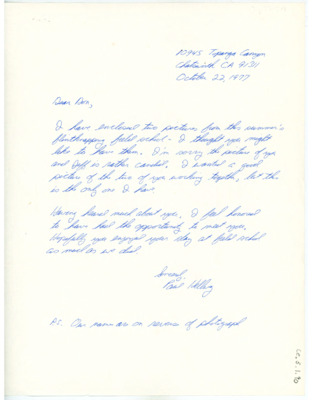 10945 Topanga Canyon
Chatsworth, CA 91311
October 22, 1977
Dear Don,
I have enclosed two pictures from this summer's
flintknapping field school. I thought you might
like to have them. I'm sorry the picture of you
and Jeff is rather candid. I wanted a good
picture of the two of you working together, but this
is the only one I have.
Having heard much about you, I feel honored
to have had the opportunity to meet you.
Hopefully you enjoyed your stay at field school
as much as we did.
Sincerely,
Paul
P.S. Our names are on reverse of photograph